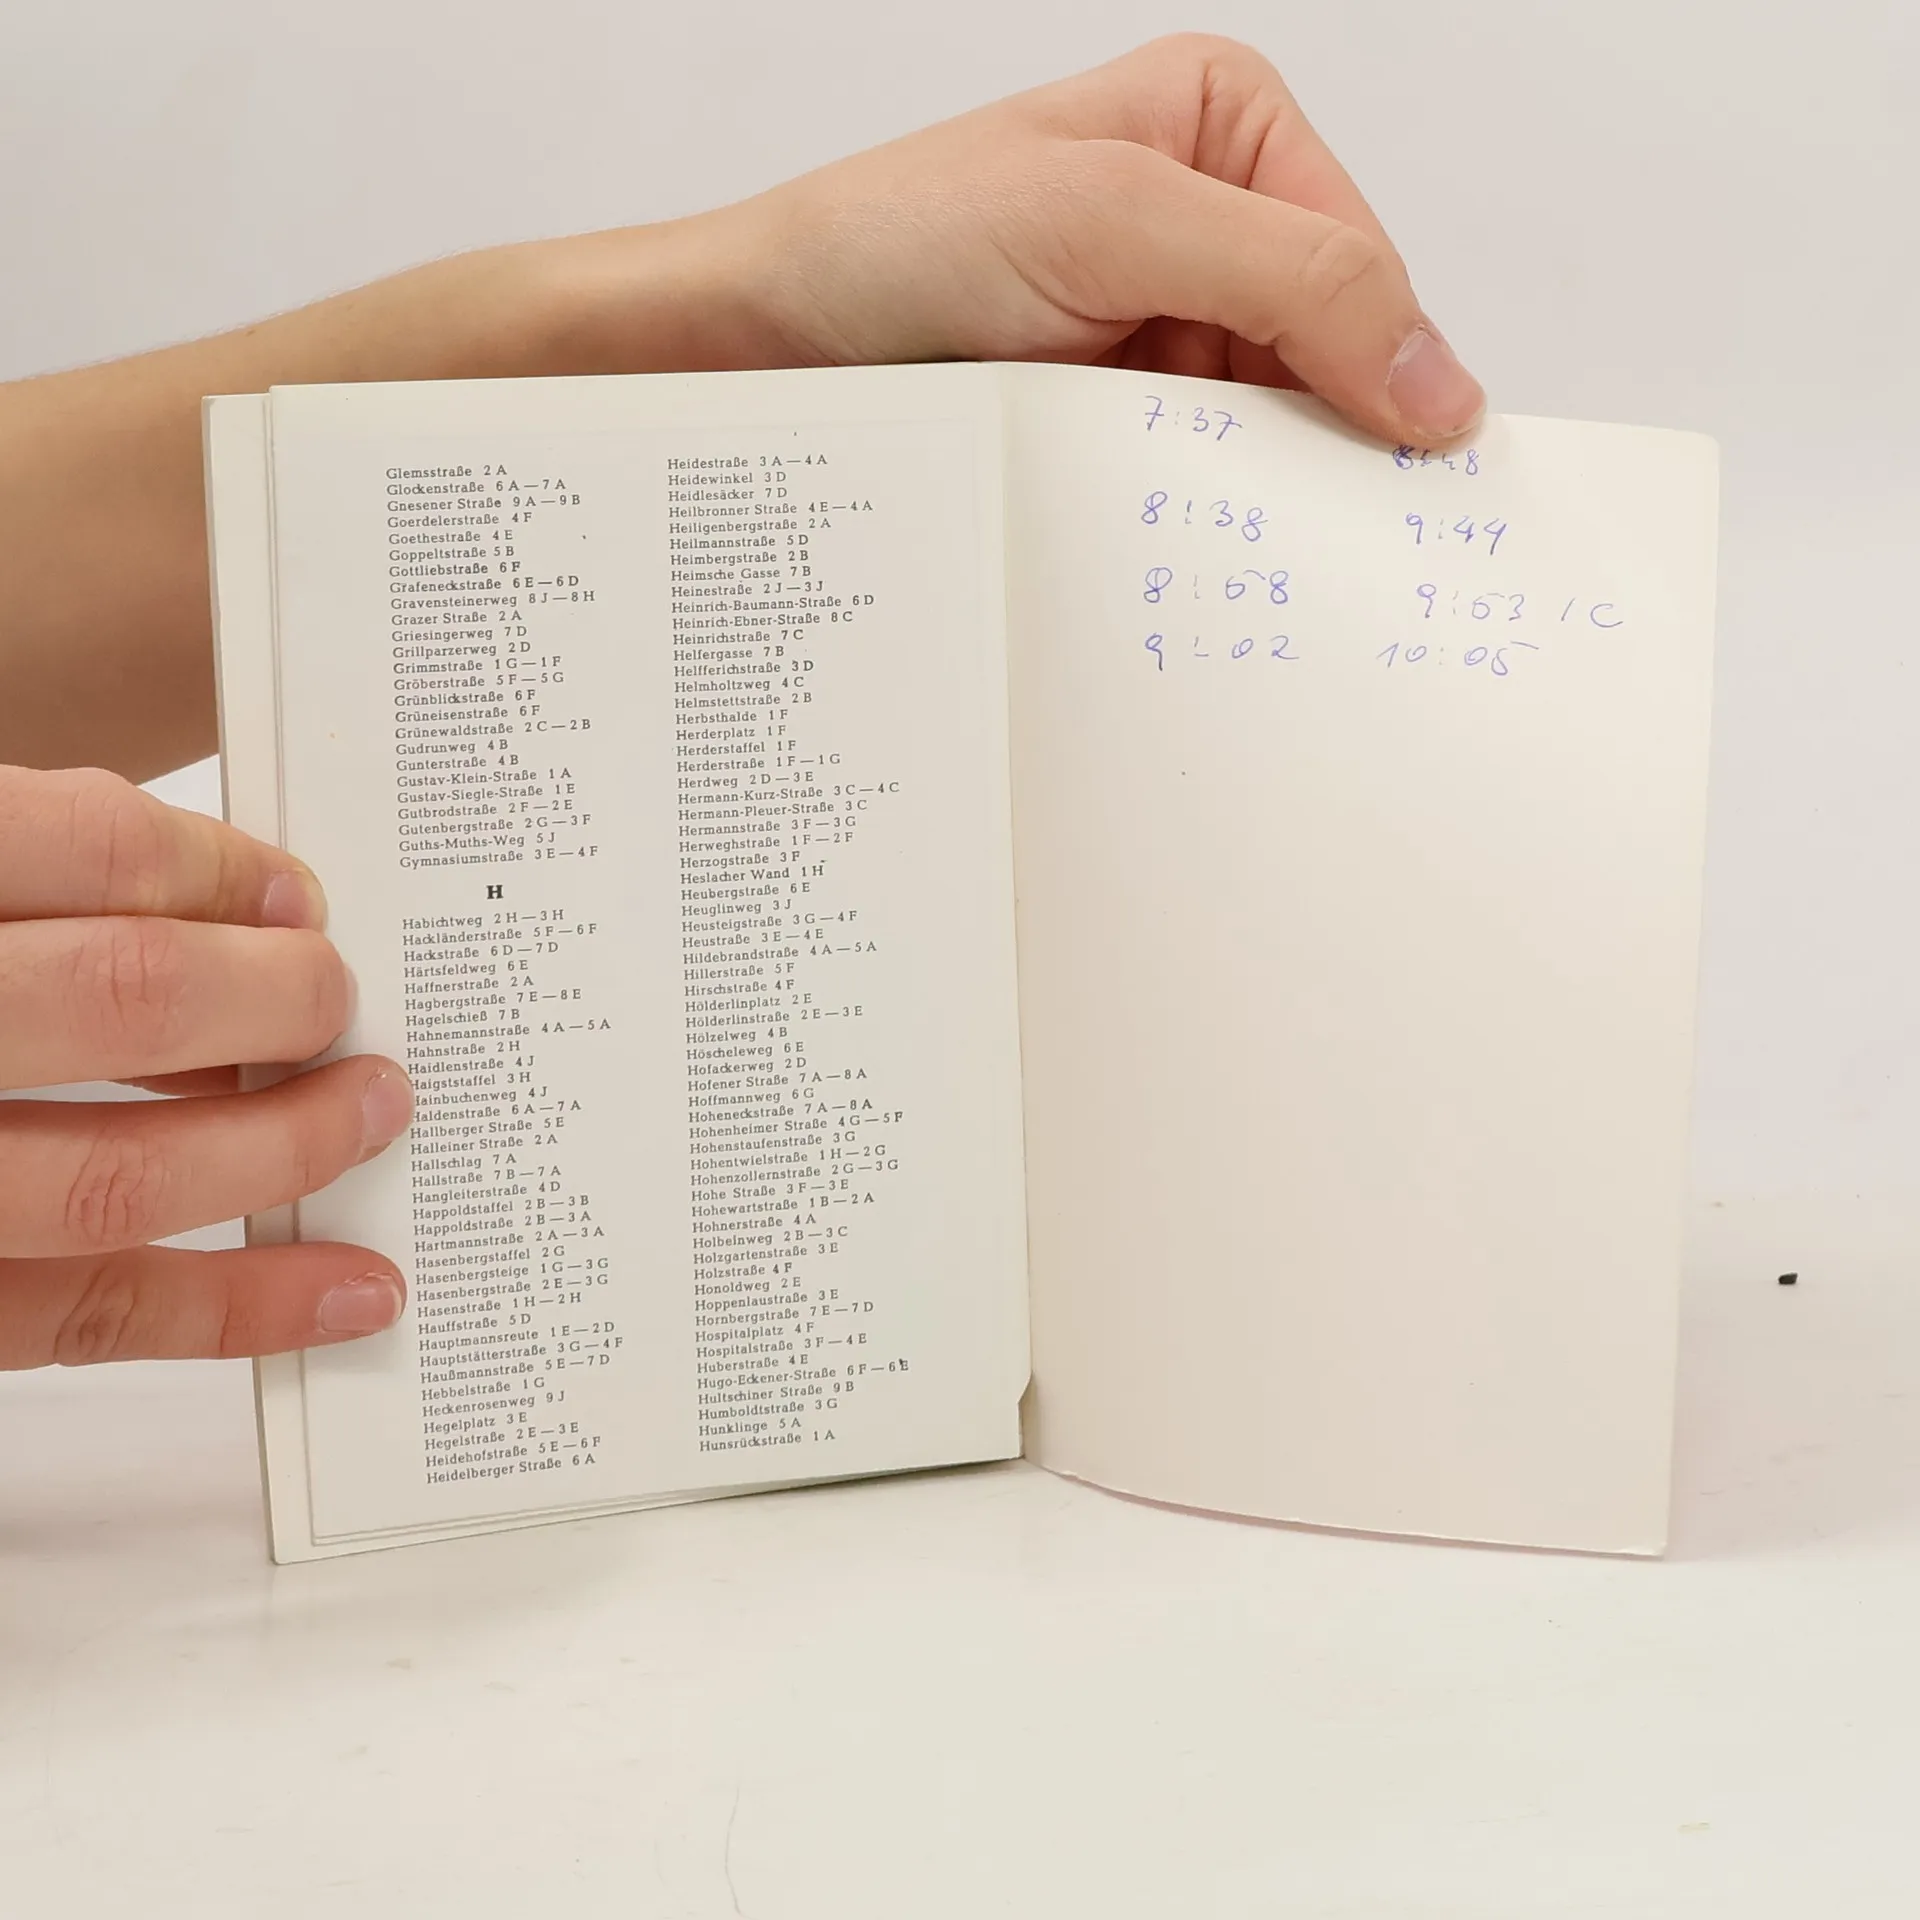 Glemsstraße 2 A
Glockenstraße 6 A — 7 A
Gnesener Straße 9 A — 9 B
Goerdelerstraße 4 F
Goethestraße 4 E
Goppeltstraße 5 B
Gottliebstraße 6 F
Grafeneckstraße 6 E — 6 D
Gravensteinerweg 8 J — 8 H
Grazer Straße 2 A
Griesingerweg 7 D
Grillparzerweg 2 D
Grimmstraße 1 G — 1 F
Gröberstraße 5 F — 5 G
Grünblickstraße 6 F
Grüneisenstraße 6 F
Grünewaldstraße 2 C — 2 B
Gudrunweg 4 B
Gunterstraße 4 B
Gustav-Klein-Straße 1 A
Gustav-Siegle-Straße 1 E
Gutbrodstraße 2 F — 2 E
Gutenbergstraße 2 G — 3 F
Guths-Muths-Weg 5 J
Gymnasiumstraße 3 E — 4 F
H
Habichtweg 2 H — 3 H
Hackländerstraße 5 F — 6 F
Hackstraße 6 D — 7 D
Härtsfeldweg 6 E
Haffnerstraße 2 A
Hagbergstraße 7 E — 8 E
Hagelschieß 7 B
Hahnemannstraße 4 A — 5 A
Hahnstraße 2 H
Haidlenstraße 4 J
Haigststaffel 3 H
Hainbuchenweg 4 J
Haldenstraße 6 A — 7 A
Hallberger Straße 5 E
Halleiner Straße 2 A
Hallschlag 7 A
Hallstraße 7 B — 7 A
Hangleiterstraße 4 D
Happoldstaffel 2 B — 3 B
Happoldstraße 2 B — 3 A
Hartmannstraße 2 A — 3 A
Hasenbergstaffel 2 G
Hasenbergsteige 1 G — 3 G
Hasenbergstraße 2 E — 3 G
Hasenstraße 1 H — 2 H
Hauffstraße 5 D
Hauptmannsreute 1 E — 2 D
Hauptstätterstraße 3 G — 4 F
Haußmannstraße 5 E — 7 D
Hebbelstraße 1 G
Heckenrosenweg 9 J
Hegelplatz 3 E
Hegelstraße 2 E — 3 E
Heidehofstraße 5 E — 6 F
Heidelberger Straße 6 A
Heidestraße 3 A — 4 A
Heidewinkel 3 D
Heidlesäcker 7 D
Heilbronner Straße 4 E — 4 A
Heiligenbergstraße 2 A
Heilmannstraße 5 D
Heimbergstraße 2 B
Heimsche Gasse 7 B
Heinestraße 2 J — 3 J
Heinrich-Baumann-Straße 6 D
Heinrich-Ebner-Straße 8 C
Heinrichstraße 7 C
Helfergasse 7 B
Helfferichstraße 3 D
Helmholtzweg 4 C
Helmstettstraße 2 B
Herbsthalde 1 F
Herderplatz 1 F
Herderstaffel 1 F
Herderstraße 1 F — 1 G
Herdweg 2 D — 3 E
Hermann-Kurz-Straße 3 C — 4 C
Hermann-Pleuer-Straße 3 C
Hermannstraße 3 F — 3 G
Herweghstraße 1 F — 2 F
Herzogstraße 3 F
Heslacher Wand 1 H
Heubergstraße 6 E
Heuglinweg 3 J
Heusteigstraße 3 G — 4 F
Heustraße 3 E — 4 E
Hildebrandstraße 4 A — 5 A
Hillerstraße 5 F
Hirschstraße 4 F
Hölderlinplatz 2 E
Hölderlinstraße 2 E — 3 E
Hölzelweg 4 B
Höscheleweg 6 E
Hofackerweg 2 D
Hofener Straße 7 A — 8 A
Hoffmannweg 6 G
Hoheneckstraße 7 A — 8 A
Hohenheimer Straße 4 G — 5 F
Hohenstaufenstraße 3 G
Hohentwielstraße 1 H — 2 G
Hohenzollernstraße 2 G — 3 G
Hohe Straße 3 F — 3 E
Hohewartstraße 1 B — 2 A
Hohnerstraße 4 A
Holbeinweg 2 B — 3 C
Holzgartenstraße 3 E
Holzstraße 4 F
Honoldweg 2 E
Hoppenlaustraße 3 E
Hornbergstraße 7 E — 7 D
Hospitalplatz 4 F
Hospitalstraße 3 F — 4 E
Huberstraße 4 E
Hugo-Eckener-Straße 6 F — 6 E
Hultschiner Straße 9 B
Humboldtstraße 3 G
Hunklinge 5 A
Hunsrückstraße 1 A
7:37
8:38 9:44
8:58 9:53 / C
9:02 10:05